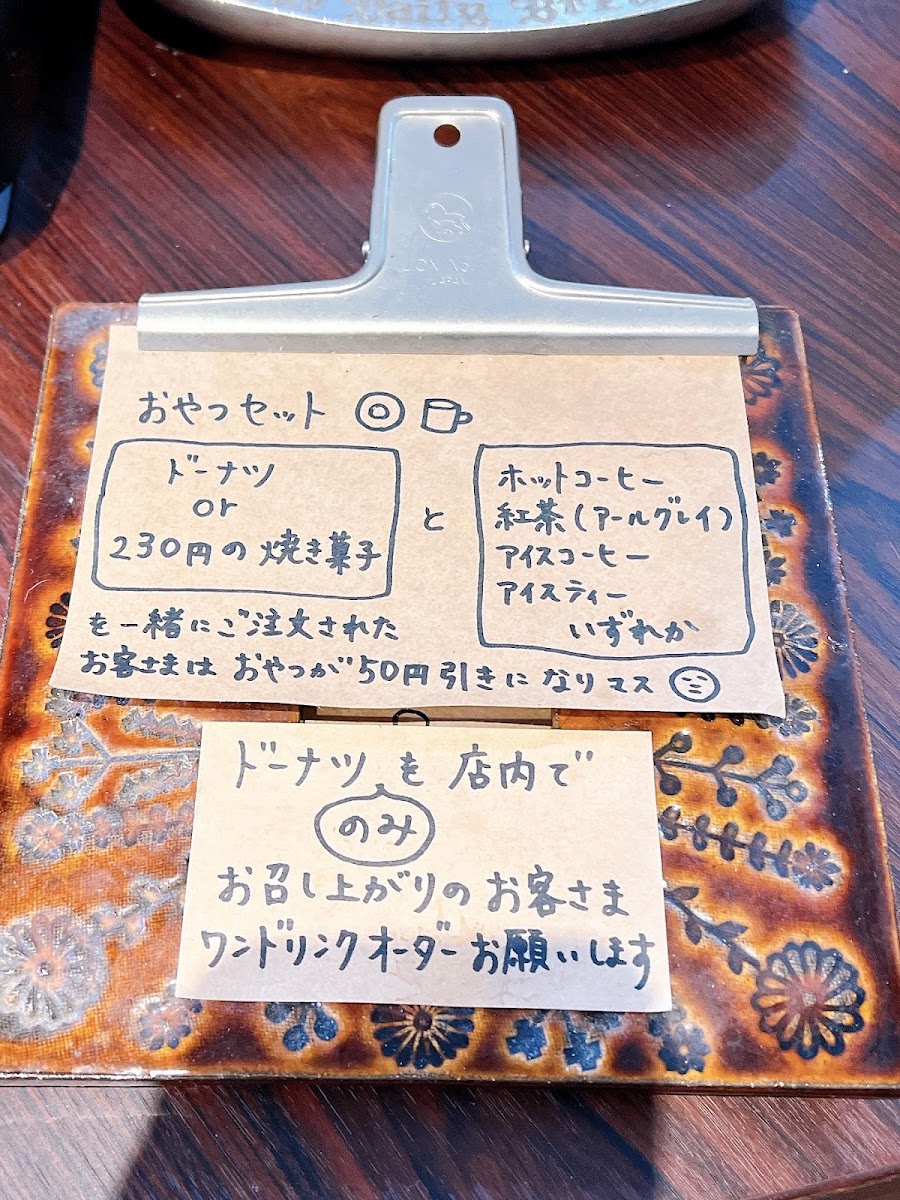 おやつセット
ドーナツ
or
230円の焼き菓子
と
ホットコーヒー
紅茶(アールグレイ)
アイスコーヒー
アイスティー
いずれか
を一緒にご注文された
お客さまは おやつが50円引きになりマス
ドーナツを店内で
のみ
お召し上がりのお客さま
ワンドリンクオーダーお願いします